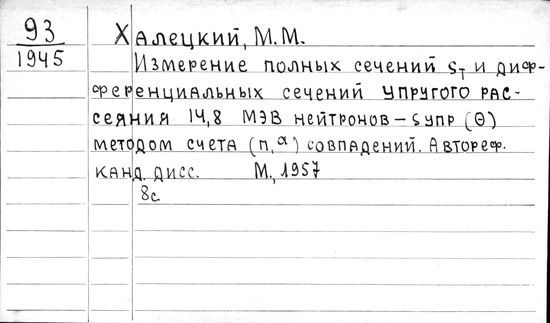 93
1945
Халецкий, М.М.
Измерение полных сечений Sт и диф-
ференциальных сечений упругого рас-
сеяния 14,8 МЭВ нейтронов – Sупр (θ)
методом счета (n,α) совпадений. Автореф.
канд. дисс. М., 1957
8с